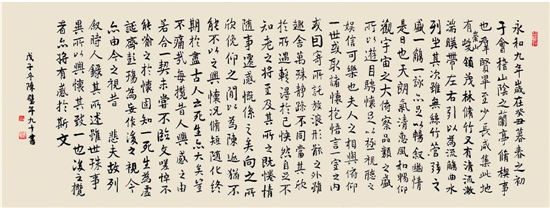 永和九年歲在癸丑暮春之初
于會稽山陰之蘭亭脩稧事
也羣賢畢至少長咸集此地
有崇山峻領茂林脩竹又有清流激
湍暎帶左右引以為流觴曲水
列坐其次雖無絲竹管弦之
盛一觴一詠亦足以暢敘幽情
是日也天朗氣清惠風和暢仰
觀宇宙之大俯察品類之盛
所以遊目騁懷足以極視聽之
娛信可樂也夫人之相與俯仰
一世或取諸懷抱悟言一室之內
或因寄所託放浪形骸之外雖
趣舍萬殊靜躁不同當其欣
於所遇暫得於己快然自足不
知老之將至及其所之既惓情
隨事遷感慨係之矣向之所
欣俛仰之閒以為陳迹猶不
能不以之興懷況脩短隨化終
期於盡古人云死生亦大矣豈
不痛哉每攬昔人興感之由
若合一契未嘗不臨文嗟悼不
能喻之於懷固知一死生為虛
誕齊彭殤為妄作後之視今
亦由今之視昔 悲夫故列
敘時人錄其所述雖世殊事
異所以興懷其致一也後之攬
者亦將有感於斯文
戊子 陳 年九十書